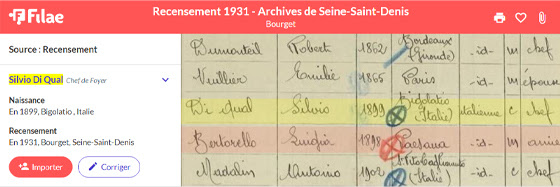 Filae
Recensement 1931 - Archives de Seine-Saint-Denis
Bourget
Source : Recensement
Silvio Di Qual Chef de Foyer
Naissance
En 1899, Bigolatio , Italie
Recensement
En 1931, Bourget, Seine-Saint-Denis
Importer
Corriger
Robert 1862 Bordeaux (Gironde) -id- m chef
Vullier Emilie 1865 Paris -id- m épouse
Di Qual Silvio 1899 Bigolatio (Italie) italienne c chef
Bertorello 1898 Paesana -id- m
Madalin Antonio 1902 (Italie) -id- c chef